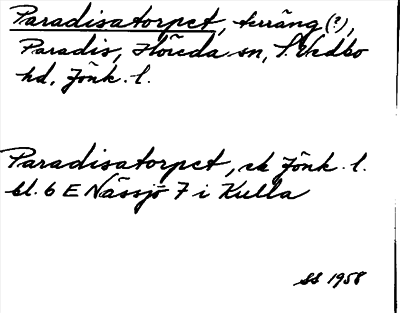 Paradisatorpet, terräng (?),
Paradis, Flöreda sn, S. Vedbo
hd, Jönk. l.
Paradisatorpet, ek Jönk. l.
bl. 6 E Nässjö 7 i Kulla
SS 1958